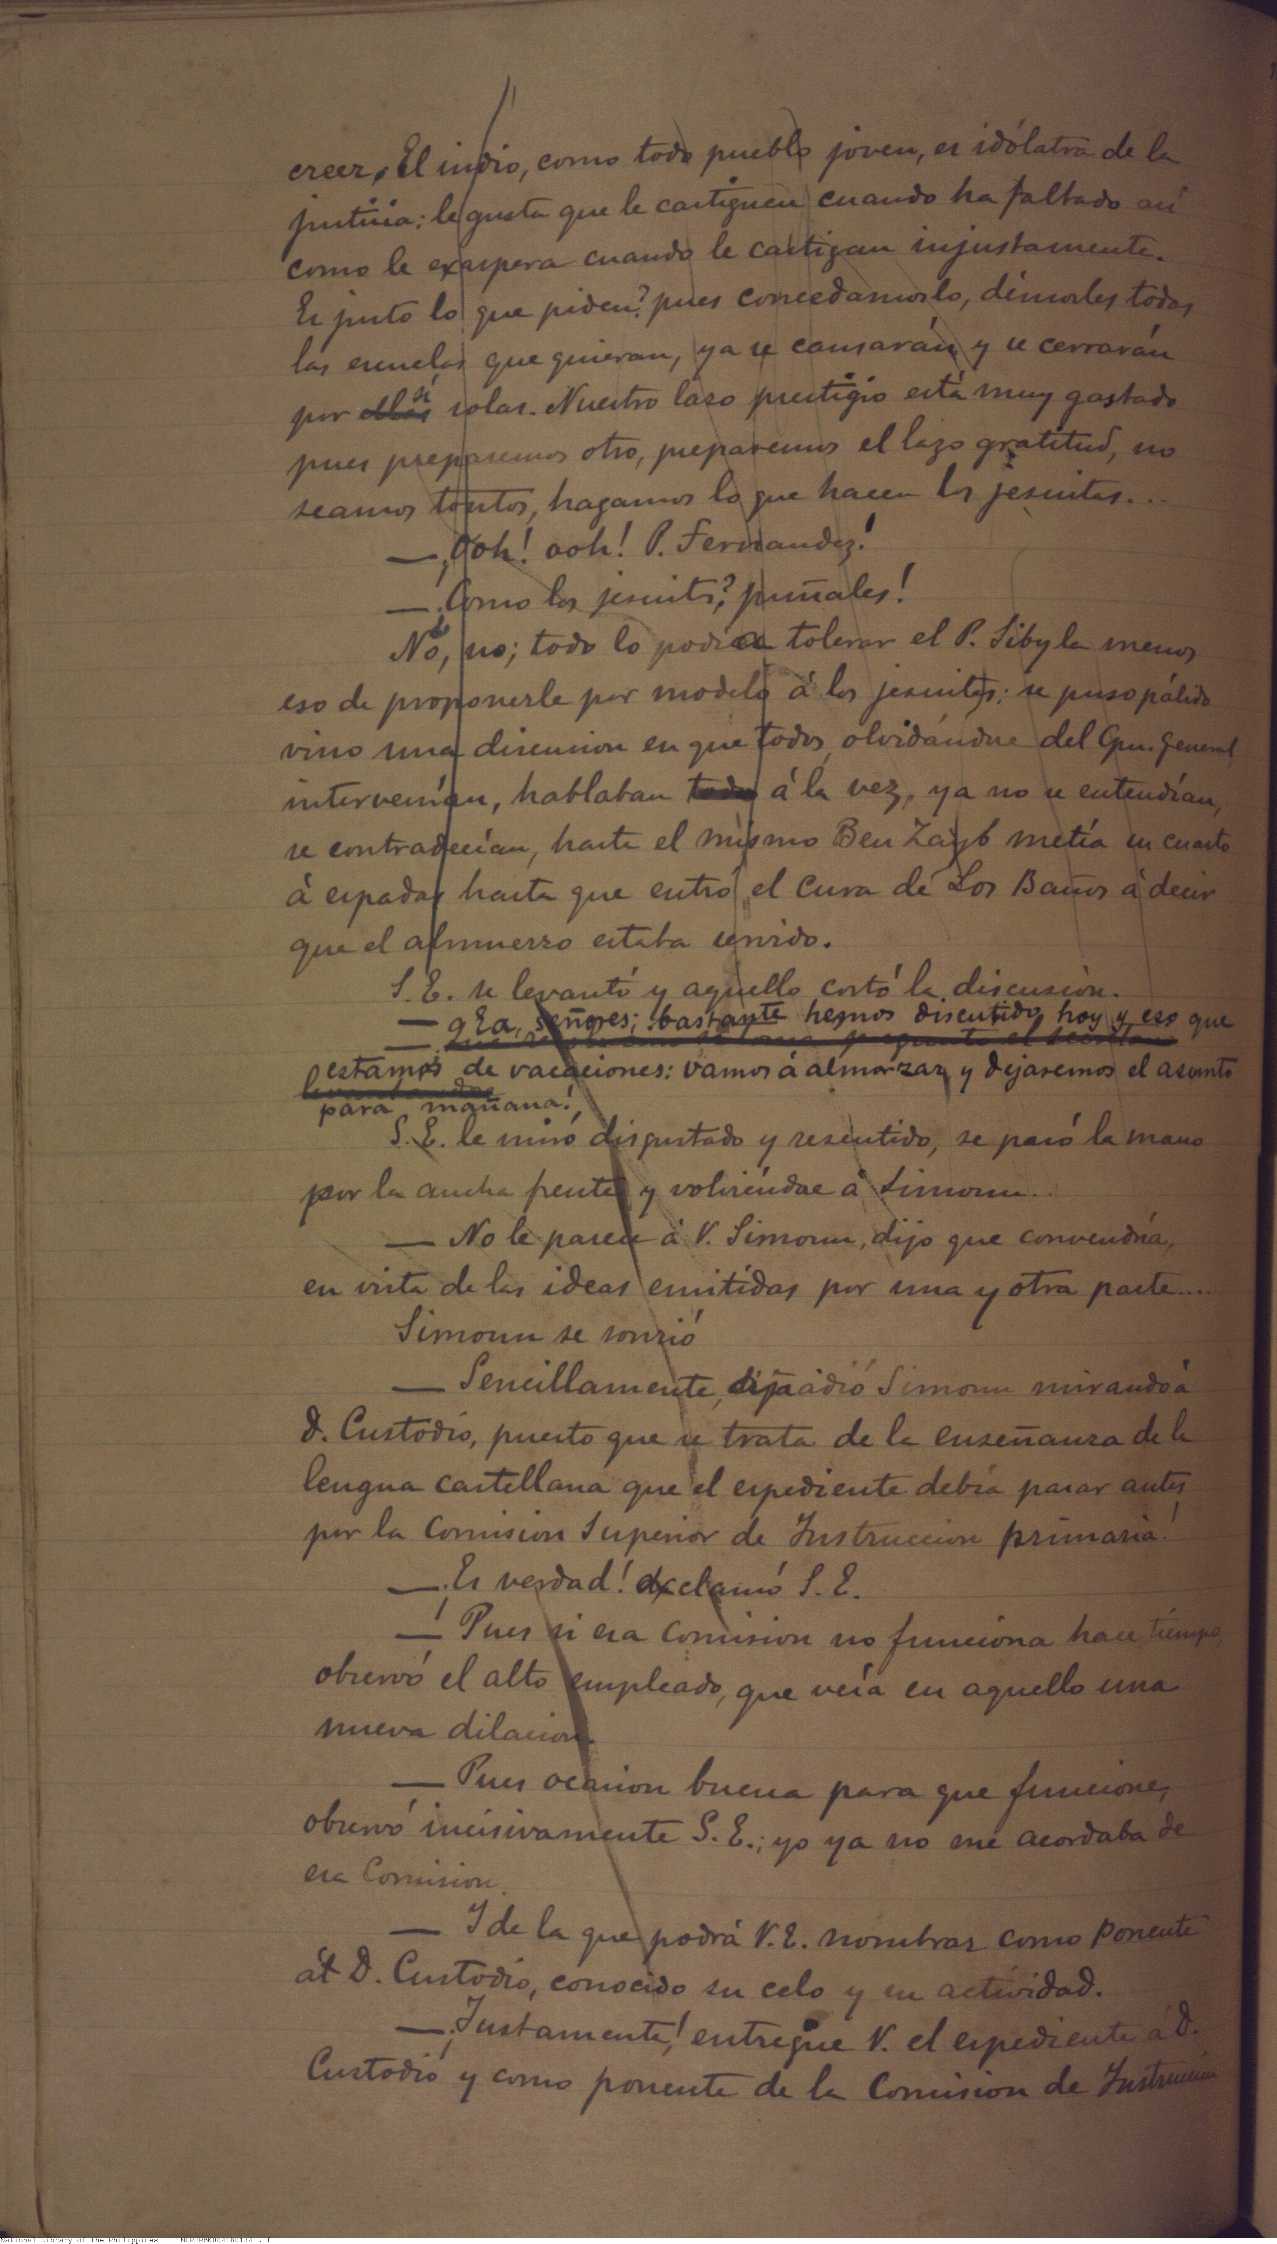 creer. El indio, como todo pueblo joven, es idólatra de la
justicia: le gusta que le castiguen cuando ha faltado así
como le exaspera cuando le castigan injustamente.
Es justo lo que piden? pues concedamoslo, démosles todas
las escuelas que quieran, ya se cansarán y se cerrarán
por sí solas. Nuestro lazo prestigio está muy gastado
pues preparemos otro, preparemos el lazo gratitud, no
seamos tontos, hagamos lo que hacen los jesuitas...
— ¡Ooh! ooh! P. Fernandez!
— ¡Como los jesuits? puñales!
No, no; todo lo podía tolerar el P. Sibyla menos
eso de proponerle por modelo á los jesuitas; se puso pálido
vino una discusion en que todos olvidándose del Gen. general
intervenían, hablaban todos á la vez, ya no se entendían,
se contradecían, hasta el mismo Ben Zayb metía su cuarto
á espadas hasta que entró el cura de Los Baños á decir
que el almuerzo estaba servido.
S. E. se levantó y aquello cortó la discusión.
— Ea, señores; bastante hemos discutido hoy y eso que
estamos de vacaciones: vamos á almorzar y dejaremos el asunto
para mañana!
S. E. le miró disgustado y resentido, se pasó la mano
por la ancha frente y volviéndose á Simoun..
— No le parece á V. Simoun, dijo que convendría,
en vista de las ideas emitidas por una y otra parte....
Simoun se sonrió
— Sencillamente, añadió Simoun mirando á
D. Custodio, puesto que se trata de la enseñanza de la
lengua castellana que el espediente debía pasar antes
por la Comision Superior de Instruccion primaria!
— ¡Es verdad! exclamó S. E.
— ! Pues si esa Comision no funciona hace tiempo,
observó el alto empleado, que veía en aquello una
nueva dilacion.
— Pues ocasion buena para que funcione,
observó incisivamente S. E.; yo ya no me acordaba de
esa Comision.
— Y de la que podrá V. E. nombrar como ponente
á D. Custodio, conocido su celo y su actividad.
— ¡Justamente! entregue V. el espediente á D.
Custodio y como ponente de la Comision de Instruccion